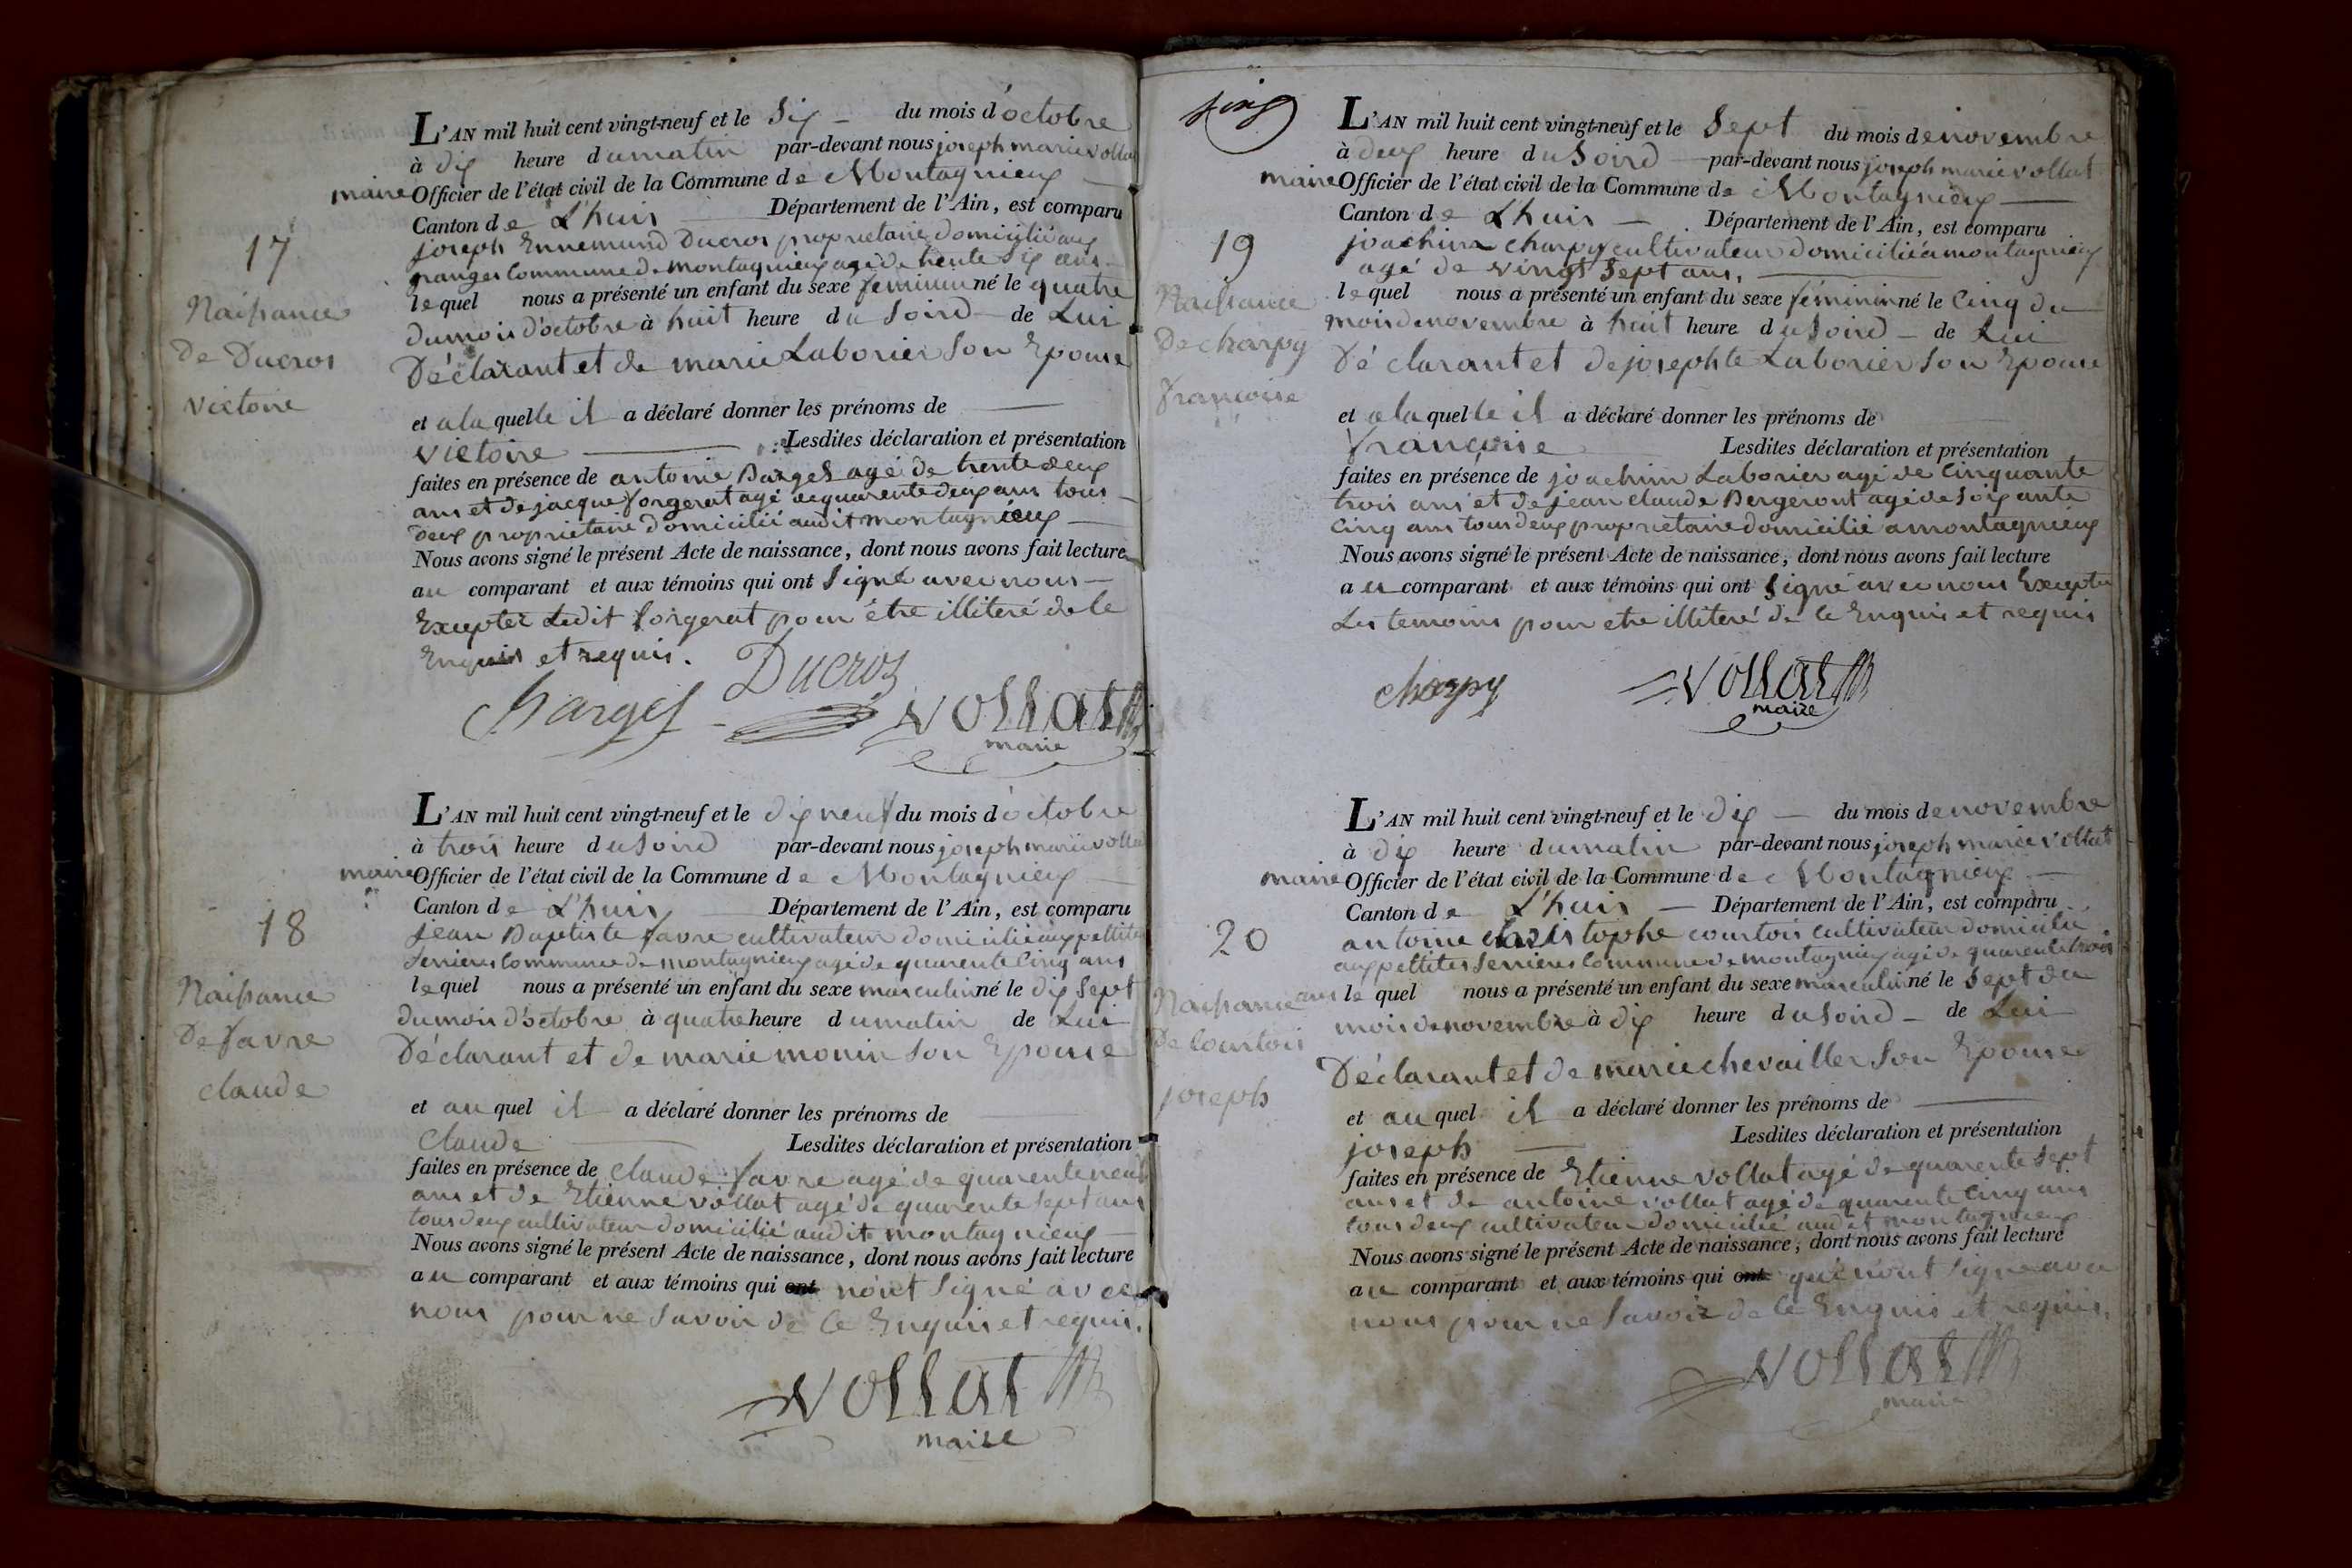 L'AN mil huit cent vingt-neuf et le Six du mois d'octobre
à dix heure du matin par-devant nous joseph marie vollat
maire Officier de l'état civil de la Commune de Montagnieux
Canton de L'huis Département de l'Ain, est comparu
joseph Ennemund Ducros proprietaire domicilié aux
granges Commune de montagnieux agé de trente Six ans
lequel nous a présenté un enfant du sexe feminin né le quatre
du mois d'octobre à huit heure du Soird de Lui
Déclarant et de marie Laborier Son Epouse
et a la quelle il a déclaré donner les prénoms de
victoire Lesdites déclaration et présentation
faites en présence de antoine Barges agé de trente deux
ans et de jacque forgerat agé de quarente deux ans tous
deux proprietaire domicilié audit montagnieux
Nous avons signé le présent Acte de naissance, dont nous avons fait lecture
au comparant et aux témoins qui ont Signé avec nous
Excepter Ledit forgerat pour être illiteré de le
Enquis et requis.
Ducros
Barges vollat
maire
17
Naissance
De Ducros
victoire
L'AN mil huit cent vingt-neuf et le dix neuf du mois d'octobre
à trois heure du Soird par-devant nous joseph marie vollat
maire Officier de l'état civil de la Commune de Montagnieux
Canton de L'huis Département de l'Ain, est comparu
Jean Baptiste favre cultivateur domicilié aux pettites
Serrieres Commune de montagnieux agé de quarente Cinq ans
lequel nous a présenté un enfant du sexe masculin né le dix Sept
du mois d'octobre à quatre heure du matin de Lui
Déclarant et de marie monin Son Epouse
et au quel il a déclaré donner les prénoms de
Claude Lesdites déclaration et présentation
faites en présence de Claude favre agé de quarente neuf
ans et de Etienne vollat agé de quarente Sept ans
tous deux cultivateur domicilié audit montagnieux
Nous avons signé le présent Acte de naissance, dont nous avons fait lecture
au comparant et aux témoins qui ont n'ont Signé avec
nous pour ne Savoir de le Enquis et requis.
vollat
maire
18
Naissance
De favre
claude
L'AN mil huit cent vingt-neuf et le Sept du mois de novembre
à deux heure du Soird par-devant nous joseph marie vollat
maire Officier de l'état civil de la Commune de Montagnieux
Canton de L'huis Département de l'Ain, est comparu
joachim Charpy cultivateur domicilié a montagnieux
agé de vingt Sept ans,
lequel nous a présenté un enfant du sexe féminin né le Cinq du
mois de novembre à huit heure du Soird de Lui
Déclarant et de josephte Laborier Son Epouse
et a la quelle il a déclaré donner les prénoms de
françoise Lesdites déclaration et présentation
faites en présence de joachim Laborier agé de Cinquante
trois ans et de jean claude Bergeront agé de Soixante
Cinq ans tous deux proprietaire domicilié a montagnieux
Nous avons signé le présent Acte de naissance, dont nous avons fait lecture
au comparant et aux témoins qui ont Signé avec nous Excepter
Les temoins pour etre illiteré de le Enquis et requis
charpy vollat
maire
19
Naissance
De charpy
françoise
L'AN mil huit cent vingt-neuf et le dix du mois de novembre
à dix heure du matin par-devant nous joseph marie vollat
maire Officier de l'état civil de la Commune de Montagnieux
Canton de L'huis Département de l'Ain, est comparu
antoine christophe courtois cultivateur domicilié
aux pettites Serrieres Commune de montagnieux agé de quarente trois
ans lequel nous a présenté un enfant du sexe masculin né le Sept du
mois de novembre à dix heure du Soird de Lui
Déclarant et de marie chevailler Son Epouse
et au quel il a déclaré donner les prénoms de
joseph Lesdites déclaration et présentation
faites en présence de Etienne vollat agé de quarente Sept
ans et de antoine vollat agé de quarente Cinq ans
tous deux cultivateur domicilié audit montagnieux
Nous avons signé le présent Acte de naissance, dont nous avons fait lecture
au comparant et aux témoins qui ont qui n'ont Signé avec
nous pour ne Savoir de le Enquis et requis.
vollat
maire
20
Naissance
De Courtois
joseph